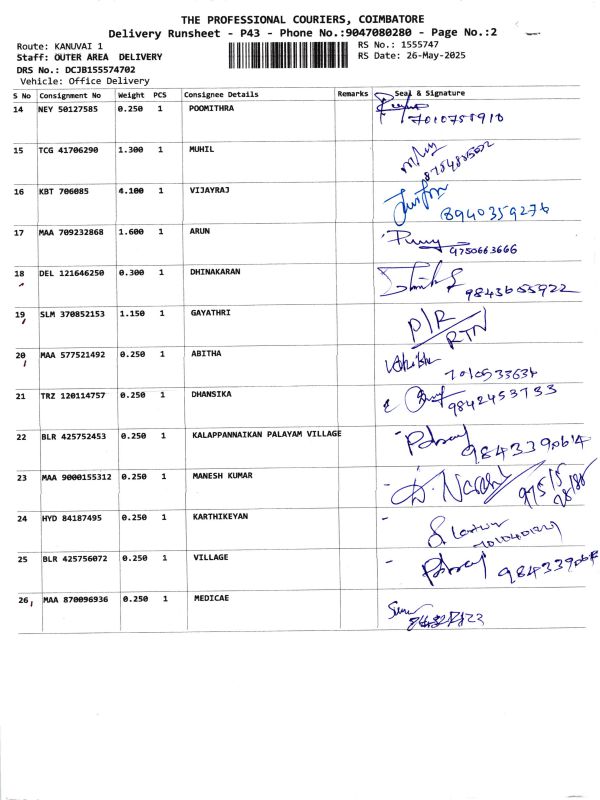 THE PROFESSIONAL COURIERS, COIMBATORE
Delivery Runsheet - P43 - Phone No.:9047080280 - Page No.:2
Route: KANUVAI 1
RS No.: 1555747
Staff: OUTER AREA DELIVERY
RS Date: 26-May-2025
DRS No.: DCJB155574702
Vehicle: Office Delivery
S No Consignment No Weight PCS Consignee Details Remarks Seal & Signature
14 NEY 50127585 0.250 1 POOMITHRA
7010758910
15 TCG 41706290 1.300 1 MUHIL
16 KBT 706085 4.100 1 VIJAYRAJ
8940359276
17 MAA 709232868 1.600 1 ARUN
9750663666
18 DEL 121646250 0.300 1 DHINAKARAN
19 SLM 370852153 1.150 1 GAYATHRI P/R
RTN
20 MAA 577521492 0.250 1 ABITHA
7010533634
21 TRZ 120114757 0.250 1 DHANSIKA
9842453733
22 BLR 425752453 0.250 1 KALAPPANNAIKAN PALAYAM VILLAGE
984339064
23 MAA 9000155312 0.250 1 MANESH KUMAR
24 HYD 84187495 0.250 1 KARTHIKEYAN
25 BLR 425756072 0.250 1 VILLAGE
26 MAA 870096936 0.250 1 MEDICAE